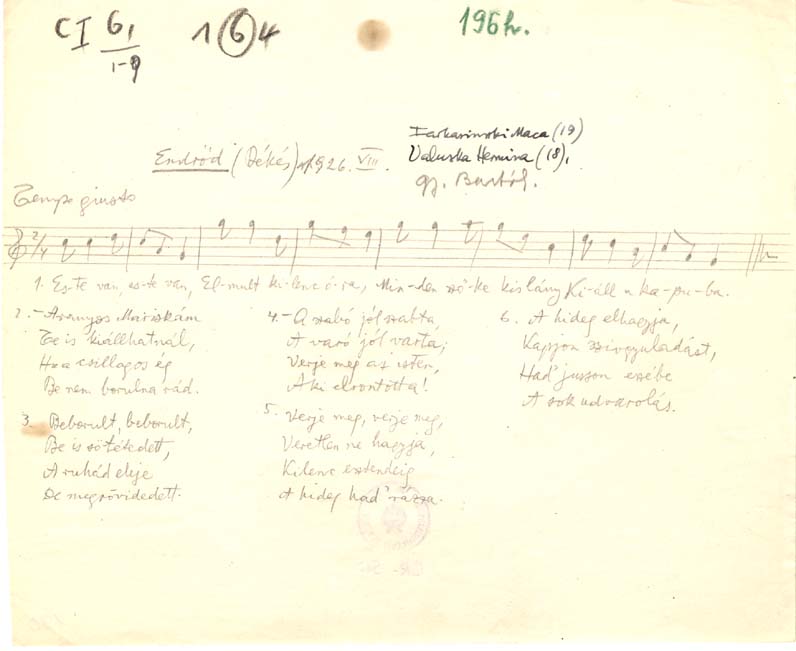 C I 6, 1-9
1 6 4
196h.
Endrőd (Békés) 1926. VIII.
Maca (19)
Valuska Hermina (18),
gy. Bartók.
Tempo giusto
2/4
1. Es-te van, es-te van, El-mult ki-lenc ó-ra, Min-den sző-ke kislány Ki-áll a ka-pu-ba.
2.- Aranyos Mariskám
Te is kiállhatnál,
Ha a csillagos ég
Be nem borulna rád.
3. Beborult, beborult,
Be is sötétedett,
A ruhád eleje
De megrövidedett.
4.- A szabó jól szabta,
A varó jól varta;
Verje meg az isten,
Aki elrontotta!
5. Verje meg, verje meg,
Veretlen ne hagyja,
Kilenc esztendeig
A hideg had' rázza.
6. A hideg elhagyja,
Kapjon szivgyuladást,
Had' jusson eszébe
A sok udvarolás.